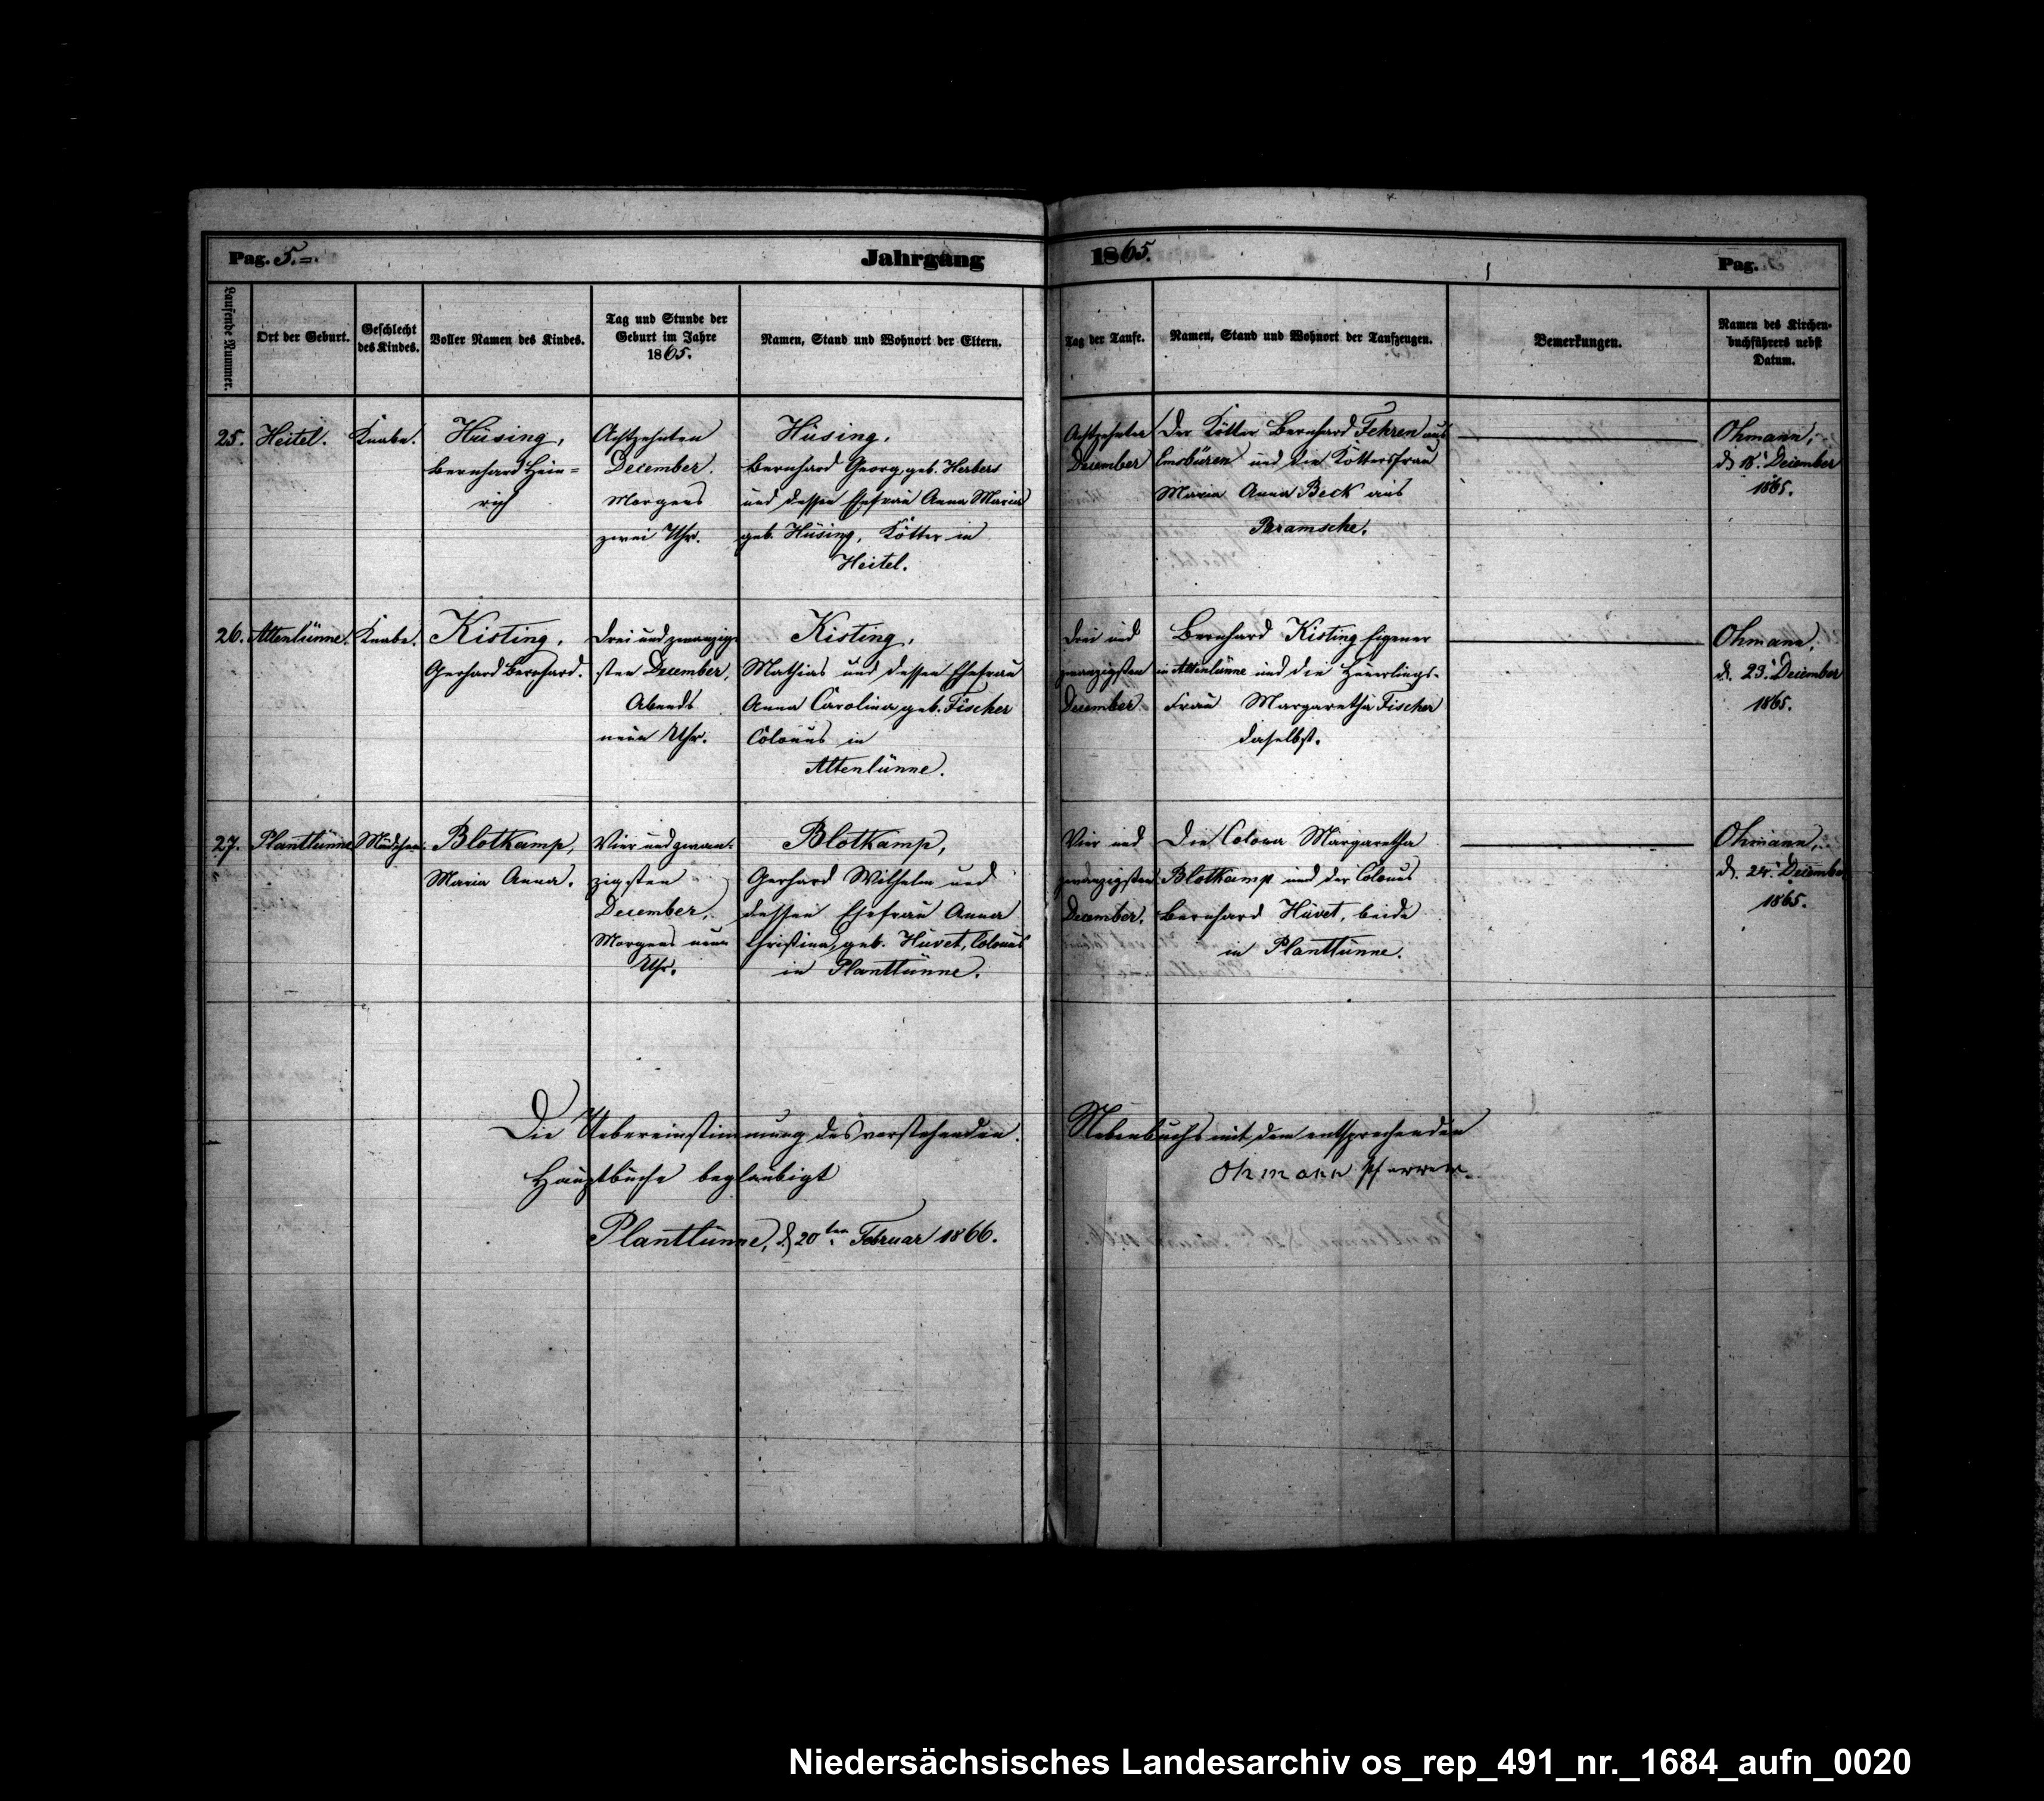 Pag. 5.=
Jahrgang
1865.
Pag.
Laufende Nummer.
Ort der Geburt.
Geschlecht
des Kindes.
Voller Namen des Kindes.
Tag und Stunde der
Geburt im Jahre
1865.
Namen, Stand und Wohnort der Eltern.
Tag der Taufe.
Namen, Stand und Wohnort der Taufzeugen.
Bemerkungen.
Namen des Kirchen-
buchführers nebst
Datum.
25.
Heitel.
Knabe.
Hüsing,
Bernhard Hein=
rich
Achtzehnten
December.
Morgens
zwei Uhr.
Hüsing,
Bernhard Georg, geb. Herbers
und dessen Ehefrau Anna Maria
geb. Hüsing, Kötter in
Heitel.
Achtzehnten
December
Der Kötter Bernhard Fehren aus
Emsbüren und die Köttersfrau
Maria Anna Beck aus
Bramsche.
Ohmann,
d. 18. December
1865.
26.
Altenlünne.
Knabe.
Kisting,
Gerhard Bernhard.
Drei und zwanzig-
sten December,
Abends
neun Uhr.
Kisting,
Mathias und dessen Ehefrau
Anna Carolina, geb. Fischer
Colonus in
Altenlünne.
Drei und
zwanzigsten
December
Bernhard Kisting Eigener
in Altenlünne und die Heuerlings-
Frau Margaretha Fischer
daselbst.
Ohmann,
d. 23. December
1865.
27.
Plantlünne
Mädchen.
Blotkamp,
Maria Anna.
Vier und zwan-
zigsten
December,
Morgens neun
Uhr.
Blotkamp,
Gerhard Wilhelm und
dessen Ehefrau Anna
Christina, geb. Hüvet, Colonus
in Plantlünne.
Vier und
zwanzigsten
December.
Die Colona Margaretha
Blotkamp und der Colonus
Bernhard Hüvet, beide
in Plantlünne.
Ohmann,
d. 24. December
1865.
Die Uebereinstimmung des vorstehenden Nebenbuchs mit dem entsprechenden
Hauptbuche beglaubigt
Ohmann Pfarrer.
Plantlünne, d. 20ten Februar 1866.
Niedersächsisches Landesarchiv os_rep_491_nr._1684_aufn_0020